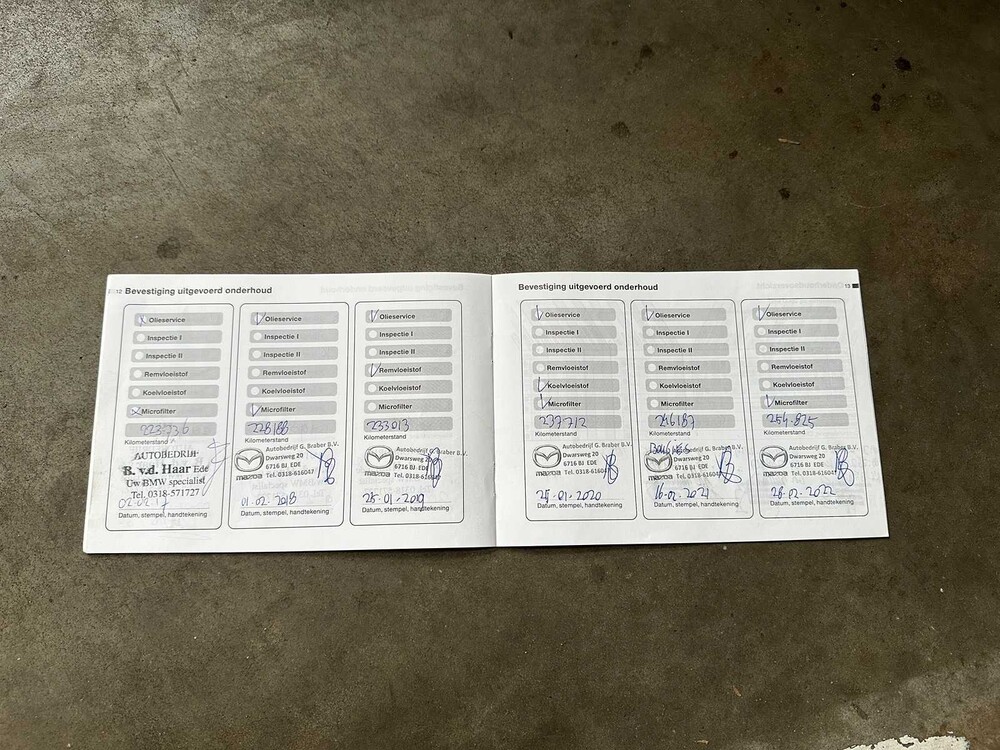 12 Bevestiging uitgevoerd onderhoud
Olieservice
Inspectie I
Inspectie II
Remvloeistof
Koelvloeistof
Microfilter
223.736
Kilometerstand
AUTOBEDRIJF
B. v.d. Haar Ede
Uw BMW specialist
Tel. 0318-571727
02-02-17
Datum, stempel, handtekening
Olieservice
Inspectie I
Inspectie II
Remvloeistof
Koelvloeistof
Microfilter
228188
Kilometerstand
Autobedrijf G. Braber B.V.
Dwarsweg 20
6716 BJ EDE
Tel. 0318-616047
mazda
01-02-2018
Datum, stempel, handtekening
Olieservice
Inspectie I
Inspectie II
Remvloeistof
Koelvloeistof
Microfilter
233013
Kilometerstand
Autobedrijf G. Braber B.V.
Dwarsweg 20
6716 BJ EDE
Tel. 0318-6160
mazda
25-01-2019
Datum, stempel, handtekening
Bevestiging uitgevoerd onderhoud 13
Olieservice
Inspectie I
Inspectie II
Remvloeistof
Koelvloeistof
Microfilter
237712
Kilometerstand
Autobedrijf G. Braber B.V.
Dwarsweg 20
6716 BJ EDE
Tel. 0318-616047
mazda
-01-2020
Datum, stempel, handtekening
Olieservice
Inspectie I
Inspectie II
Remvloeistof
Koelvloeistof
Microfilter
246187
Kilometerstand
Autobedrijf G. Braber B.V.
Dwarsweg 20
6716 BJ EDE
Tel. 0318-616
mazda
16-02-2021
Datum, stempel, handtekening
Olieservice
Inspectie I
Inspectie II
Remvloeistof
Koelvloeistof
Microfilter
254.825
Kilometerstand
Autobedrijf G. Braber B.V.
Dwarsweg 20
6716 BJ EDE
Tel. 0318-616047
mazda
28-02-2022
Datum, stempel, handtekening